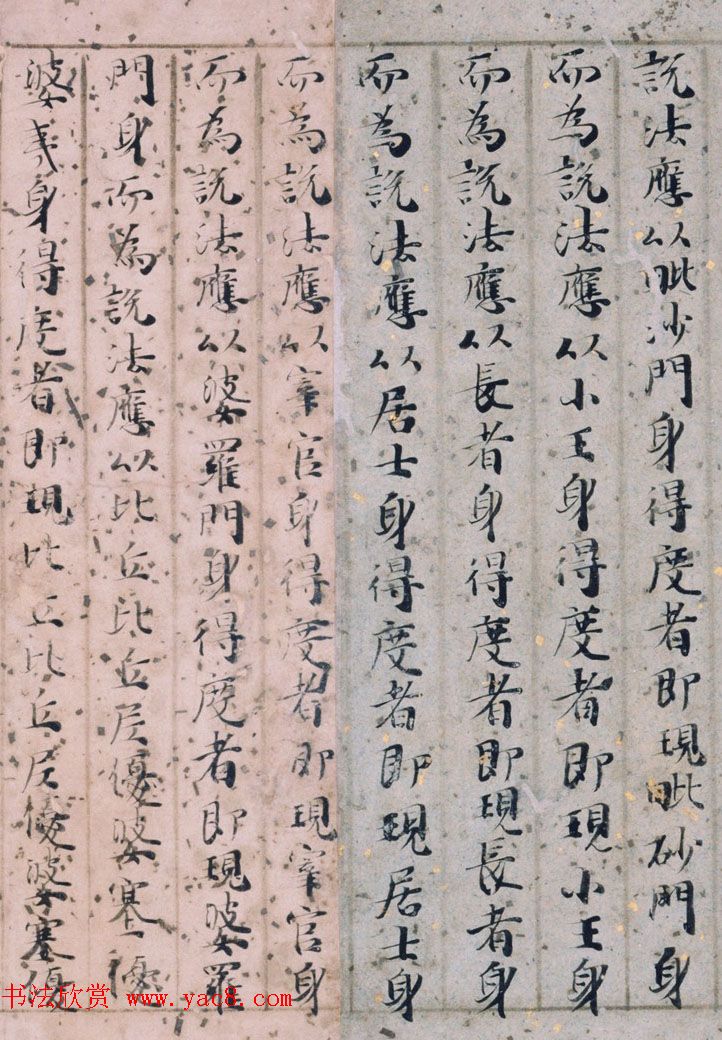 説法應以毗沙門身得度者即現毗砂門身
而為説法應以小王身得度者即現小王身
而為説法應以長者身得度者即現長者身
而為説法應以居士身得度者即現居士身
而為説法應以宰官身得度者即現宰官身
而為説法應以婆羅門身得度者即現婆羅
門身而為説法應以比丘比丘尼優婆塞優
婆夷身得度者即現比丘比丘尼優婆塞優
书法欣赏 www.yac8.com